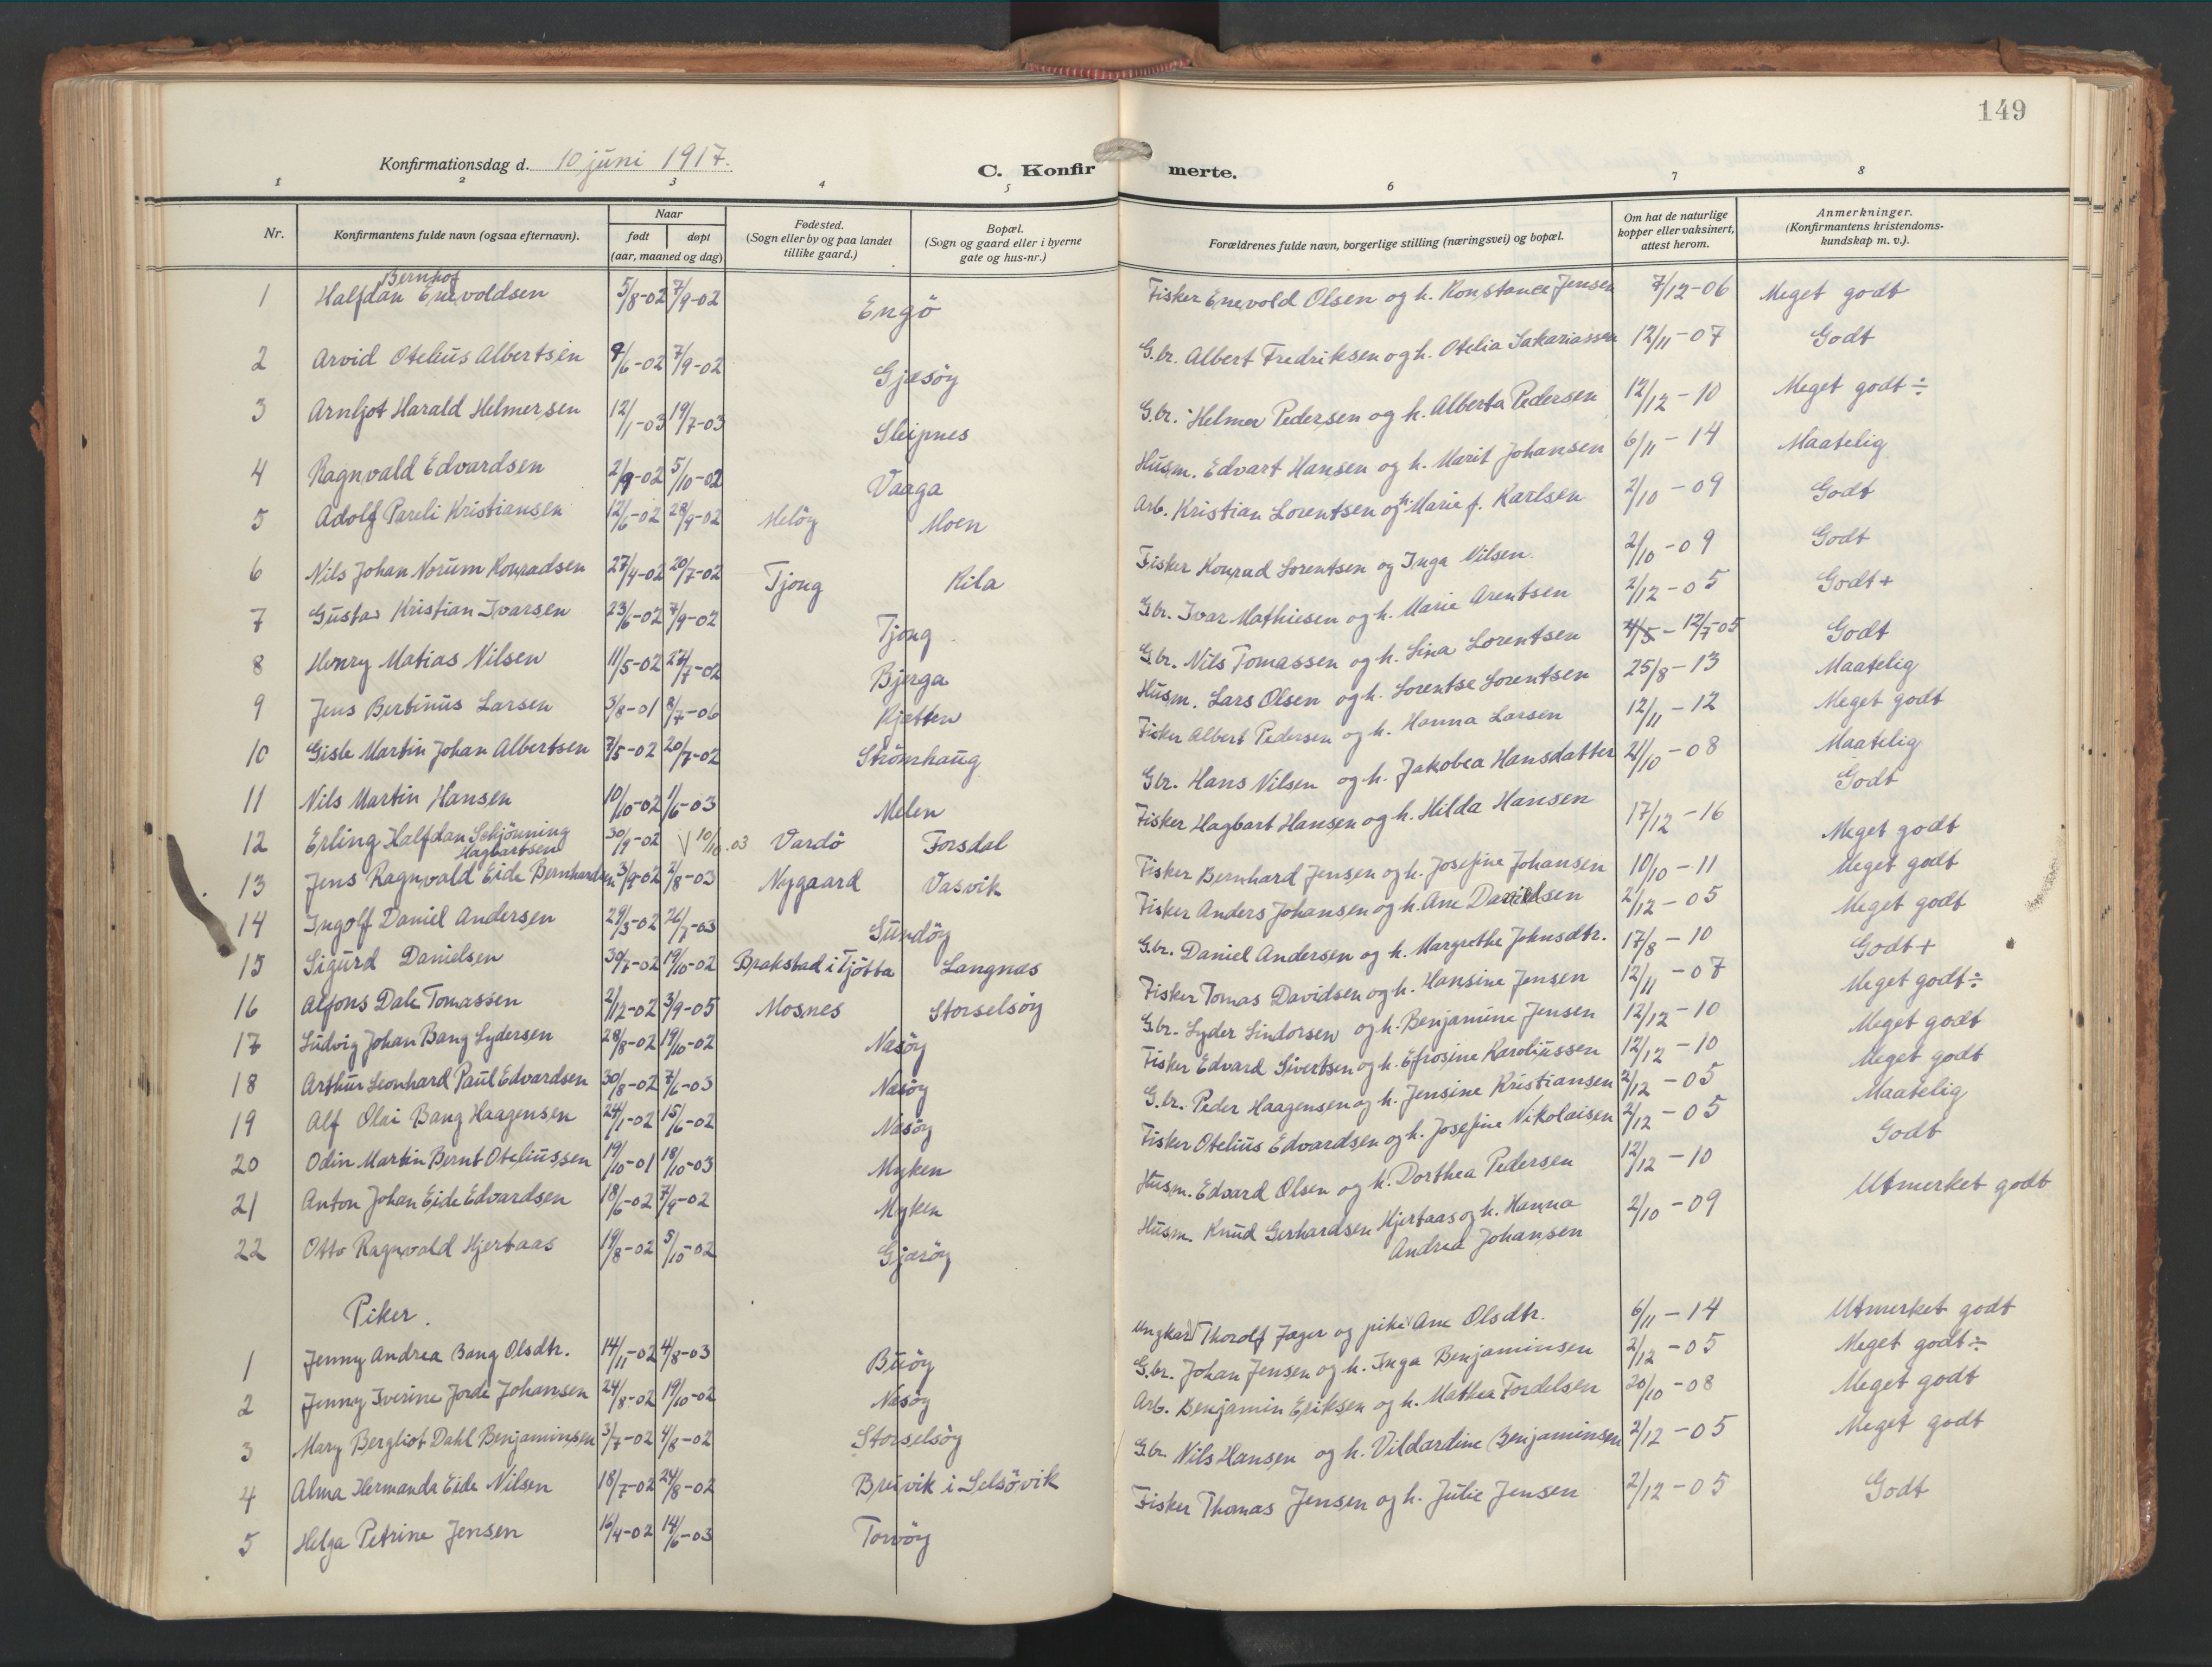 149
Konfirmationsdag d. 10 juni 1917.
C. Konfirmerte.
1 2 3 4 5 6 7 8
Nr. Konfirmantens fulde navn (ogsaa efternavn). Naar født døpt (aar, maaned og dag) Fødested. (Sogn eller by og paa landet tillike gaard.) Bopæl. (Sogn og gaard eller i byerne gate og hus-nr.) Forældrenes fulde navn, borgerlige stilling (næringsvei) og bopæl. Om hat de naturlige kopper eller vaksinert, attest herom. Anmerkninger. (Konfirmantens kristendomskundskap m. v.).
1 Halfdan Bernhof Enevoldsen 5/8-02 7/9-02 Engö Fisker Enevold Olsen og h. Konstance Jensen 7/12-06 Meget godt
2 Arvid Otelius Albertsen 9/6-02 7/9-02 Gjæsöy G.br. Albert Fredriksen og h. Otelia Sakariassen 12/11-07 Godt
3 Arnljot Harald Helmersen 12/1-03 19/7-03 Sleipnes G.br. Helmer Pedersen og h. Alberta Pedersen 12/12-10 Meget godt ÷
4 Ragnvald Edvardsen 2/9-02 5/10-02 Vaaga Husm. Edvart Hansen og h. Marit Johansen 6/11-14 Maatelig
5 Adolf Pareli Kristiansen 12/6-02 28/9-02 Melöy Moen Arb. Kristian Lorentsen og h. Marie f. Karlsen 2/10-09 Godt
6 Nils Johan Norum Konradsen 27/4-02 20/7-02 Tjong Kila Fisker Konrad Lorentsen og Inga Nilsen. 2/10-09 Godt
7 Gustav Kristian Ivarsen 23/6-02 7/9-02 Tjong Gbr. Ivar Mathiesen og h. Marie Arentsen 2/12-05 Godt +
8 Henry Matias Nilsen 11/5-02 27/7-02 Bjerga Gbr. Nils Tomassen og h. Lina Lorentsen 4/5 - 12/7-05 Godt
9 Jens Bertinus Larsen 3/8-01 8/7-06 Kjætten Husm. Lars Olsen og h. Lorentse Lorentsen 25/8-13 Maatelig
10 Gisle Martin Johan Albertsen 7/5-02 20/7-02 Strömhaug Fisker Albert Pedersen og h. Hanna Larsen 12/11-12 Meget godt
11 Nils Martin Hansen 10/10-02 1/6-03 Melen Gbr. Hans Nilsen og h. Jakobea Hansdatter 21/10-08 Maatelig
12 Erling Halfdan Schjönning Hagbartsen 30/9-02 10/10.03 Vardö Forsdal Fisker Hagbart Hansen og h. Hilda Hansen 17/12-16 Godt
13 Jens Ragnvald Eide Bernhardsen 3/9-02 2/8-03 Nygaard Vasvik Fisker Bernhard Jensen og h. Josefine Johansen 10/10-11 Meget godt
14 Ingolf Daniel Andersen 29/3-02 26/7-03 Sundöy Fisker Anders Johansen og h. Ane Danielsen 2/12-05 Meget godt
15 Sigurd Danielsen 30/7-02 19/10-02 Brakstad i Tjötta Langnæs G.br. Daniel Andersen og h. Margrethe Johnsdtr. 17/8-10 Meget godt
16 Alfons Dale Tomassen 2/12-02 3/9-05 Mosnes Storselsöy Fisker Tomas Davidsen og h. Hansine Jensen 12/11-07 Godt +
17 Ludvig Johan Bang Lydersen 28/8-02 19/10-02 Næsöy Gbr. Lyder Sindorsen og h. Benjamine Jensen 12/12-10 Meget godt ÷
18 Arthur Leonhard Paul Edvardsen 30/8-02 7/6-03 Næsöy Fisker Edvard Sivertsen og h. Efrosine Karoliussen 12/12-10 Meget godt
19 Alf Olai Bang Haagensen 24/1-02 15/6-02 Næsöy G.br. Peder Haagensen og h. Jensine Kristiansen 2/12-05 Meget godt
20 Odin Martin Bernt Oteliussen 19/10-01 18/10-03 Myken Fisker Otelius Edvardsen og h. Josefine Nikolaisen 2/12-05 Maatelig
21 Anton Johan Eide Edvardsen 18/6-02 7/9-02 Myken Husm. Edvard Olsen og h. Dorthea Pedersen 12/12-10 Godt
22 Otto Ragnvald Hjertaas 19/8-02 5/10-02 Gjæröy Husm. Knud Gerhardsen Hjertaas og h. Hanna Andrea Johansen 2/10-09 Utmerket godt
Piker.
1 Jenny Andrea Bang Olsdtr. 14/11-02 4/8-03 Buöy Ungkar Thorolf Jæger og pike Ane Olsdtr. 6/11-14 Utmerket godt
2 Jenny Iverine Jorde Johansen 24/8-02 19/10-02 Næsöy G.br. Johan Jensen og h. Inga Benjaminsen 2/12-05 Meget godt ÷
3 Mary Bergliot Dahl Benjaminsen 3/7-02 4/8-02 Storselsöy Arb. Benjamin Eriksen og h. Mathea Fordelsen 20/10-08 Meget godt
4 Alma Hermanda Eide Nilsen 18/7-02 24/8-02 Breivik i Selsövik G.br. Nils Hansen og h. Vildardine Benjaminsen 2/12-05 Meget godt
5 Helga Petrine Jensen 16/4-02 14/6-03 Torvöy Fisker Thomas Jensen og h. Julie Jensen 2/12-05 Godt